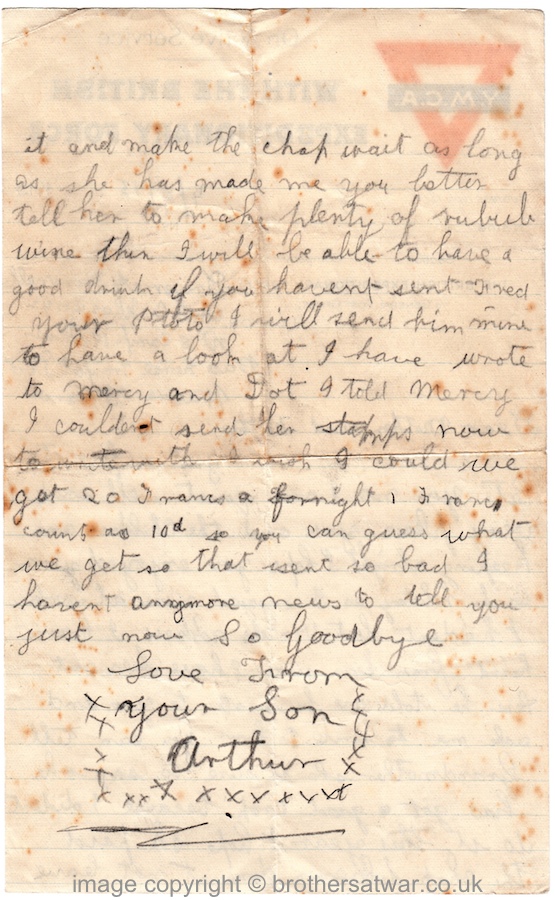 On Active Service
WITH THE BRITISH
EXPEDITIONARY FORCE
Y.M.C.A.
it and make the chap wait as long
as she has made me you better
tell her to make plenty of rubub
wine then I will be able to have a
good drink if you havent sent Fred
your Ptoto I will send him mine
to have a look at I have wrote
to mercy and Dot I told Mercy
I couldent send her stamps now
to write with I wish I could we
get 20 Francs a fornight 1 Franc
counts as 10d so you can guess what
we get so that isent so bad I
havent anymore news to tell you
just now So Goodbye
Love From
x your Son x
Arthur x
x x x x x x x x x x
image copyright © brothersatwar.co.uk